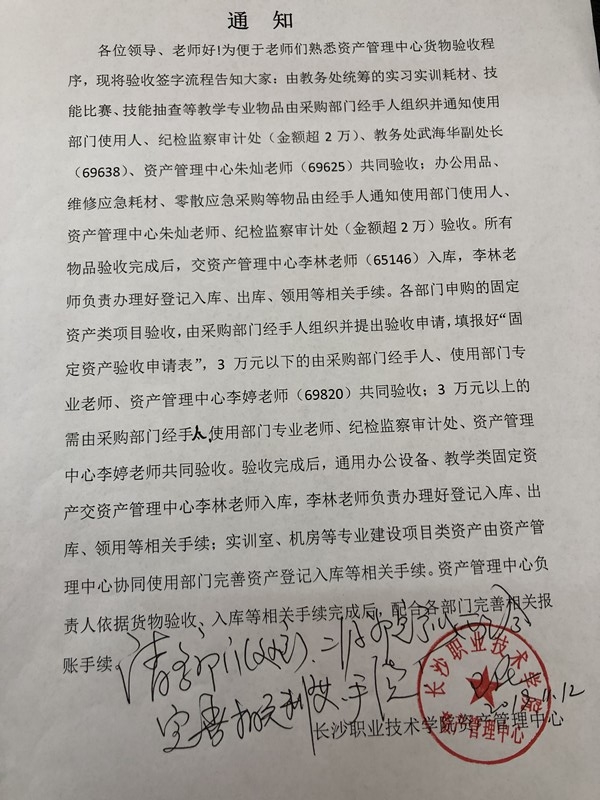 通 知
各位领导、老师好!为便于老师们熟悉资产管理中心货物验收程
序，现将验收签字流程告知大家：由教务处统筹的实习实训耗材、技
能比赛、技能抽查等教学专业物品由采购部门经手人组织并通知使用
部门使用人、纪检监察审计处（金额超 2 万）、教务处武海华副处长
（69638）、资产管理中心朱灿老师（69625）共同验收；办公用品、
维修应急耗材、零散应急采购等物品由经手人通知使用部门使用人、
资产管理中心朱灿老师、纪检监察审计处（金额超 2 万）验收。所有
物品验收完成后，交资产管理中心李林老师（65146）入库，李林老
师负责办理好登记入库、出库、领用等相关手续。各部门申购的固定
资产类项目验收，由采购部门经手人组织并提出验收申请，填报好“固
定资产验收申请表”，3 万元以下的由采购部门经手人、使用部门专
业老师、资产管理中心李婷老师（69820）共同验收；3 万元以上的
需由采购部门经手人,使用部门专业老师、纪检监察审计处、资产管理
中心李婷老师共同验收。验收完成后，通用办公设备、教学类固定资
产交资产管理中心李林老师入库，李林老师负责办理好登记入库、出
库、领用等相关手续；实训室、机房等专业建设项目类资产由资产管
理中心协同使用部门完善资产登记入库等相关手续。资产管理中心负
责人依据货物验收、入库等相关手续完成后，配合各部门完善相关报
账手续。
长沙职业技术学院
2018.11.12
资产管理中心
长沙职业技术学院资产管理中心